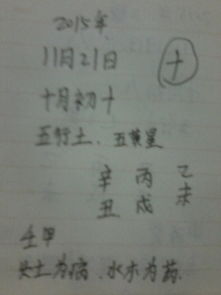 2015年
11月21日 十
十月初十
五行土、五黄星
辛 丙 乙
丑 戌 未
壬甲
土为病、水木为药.